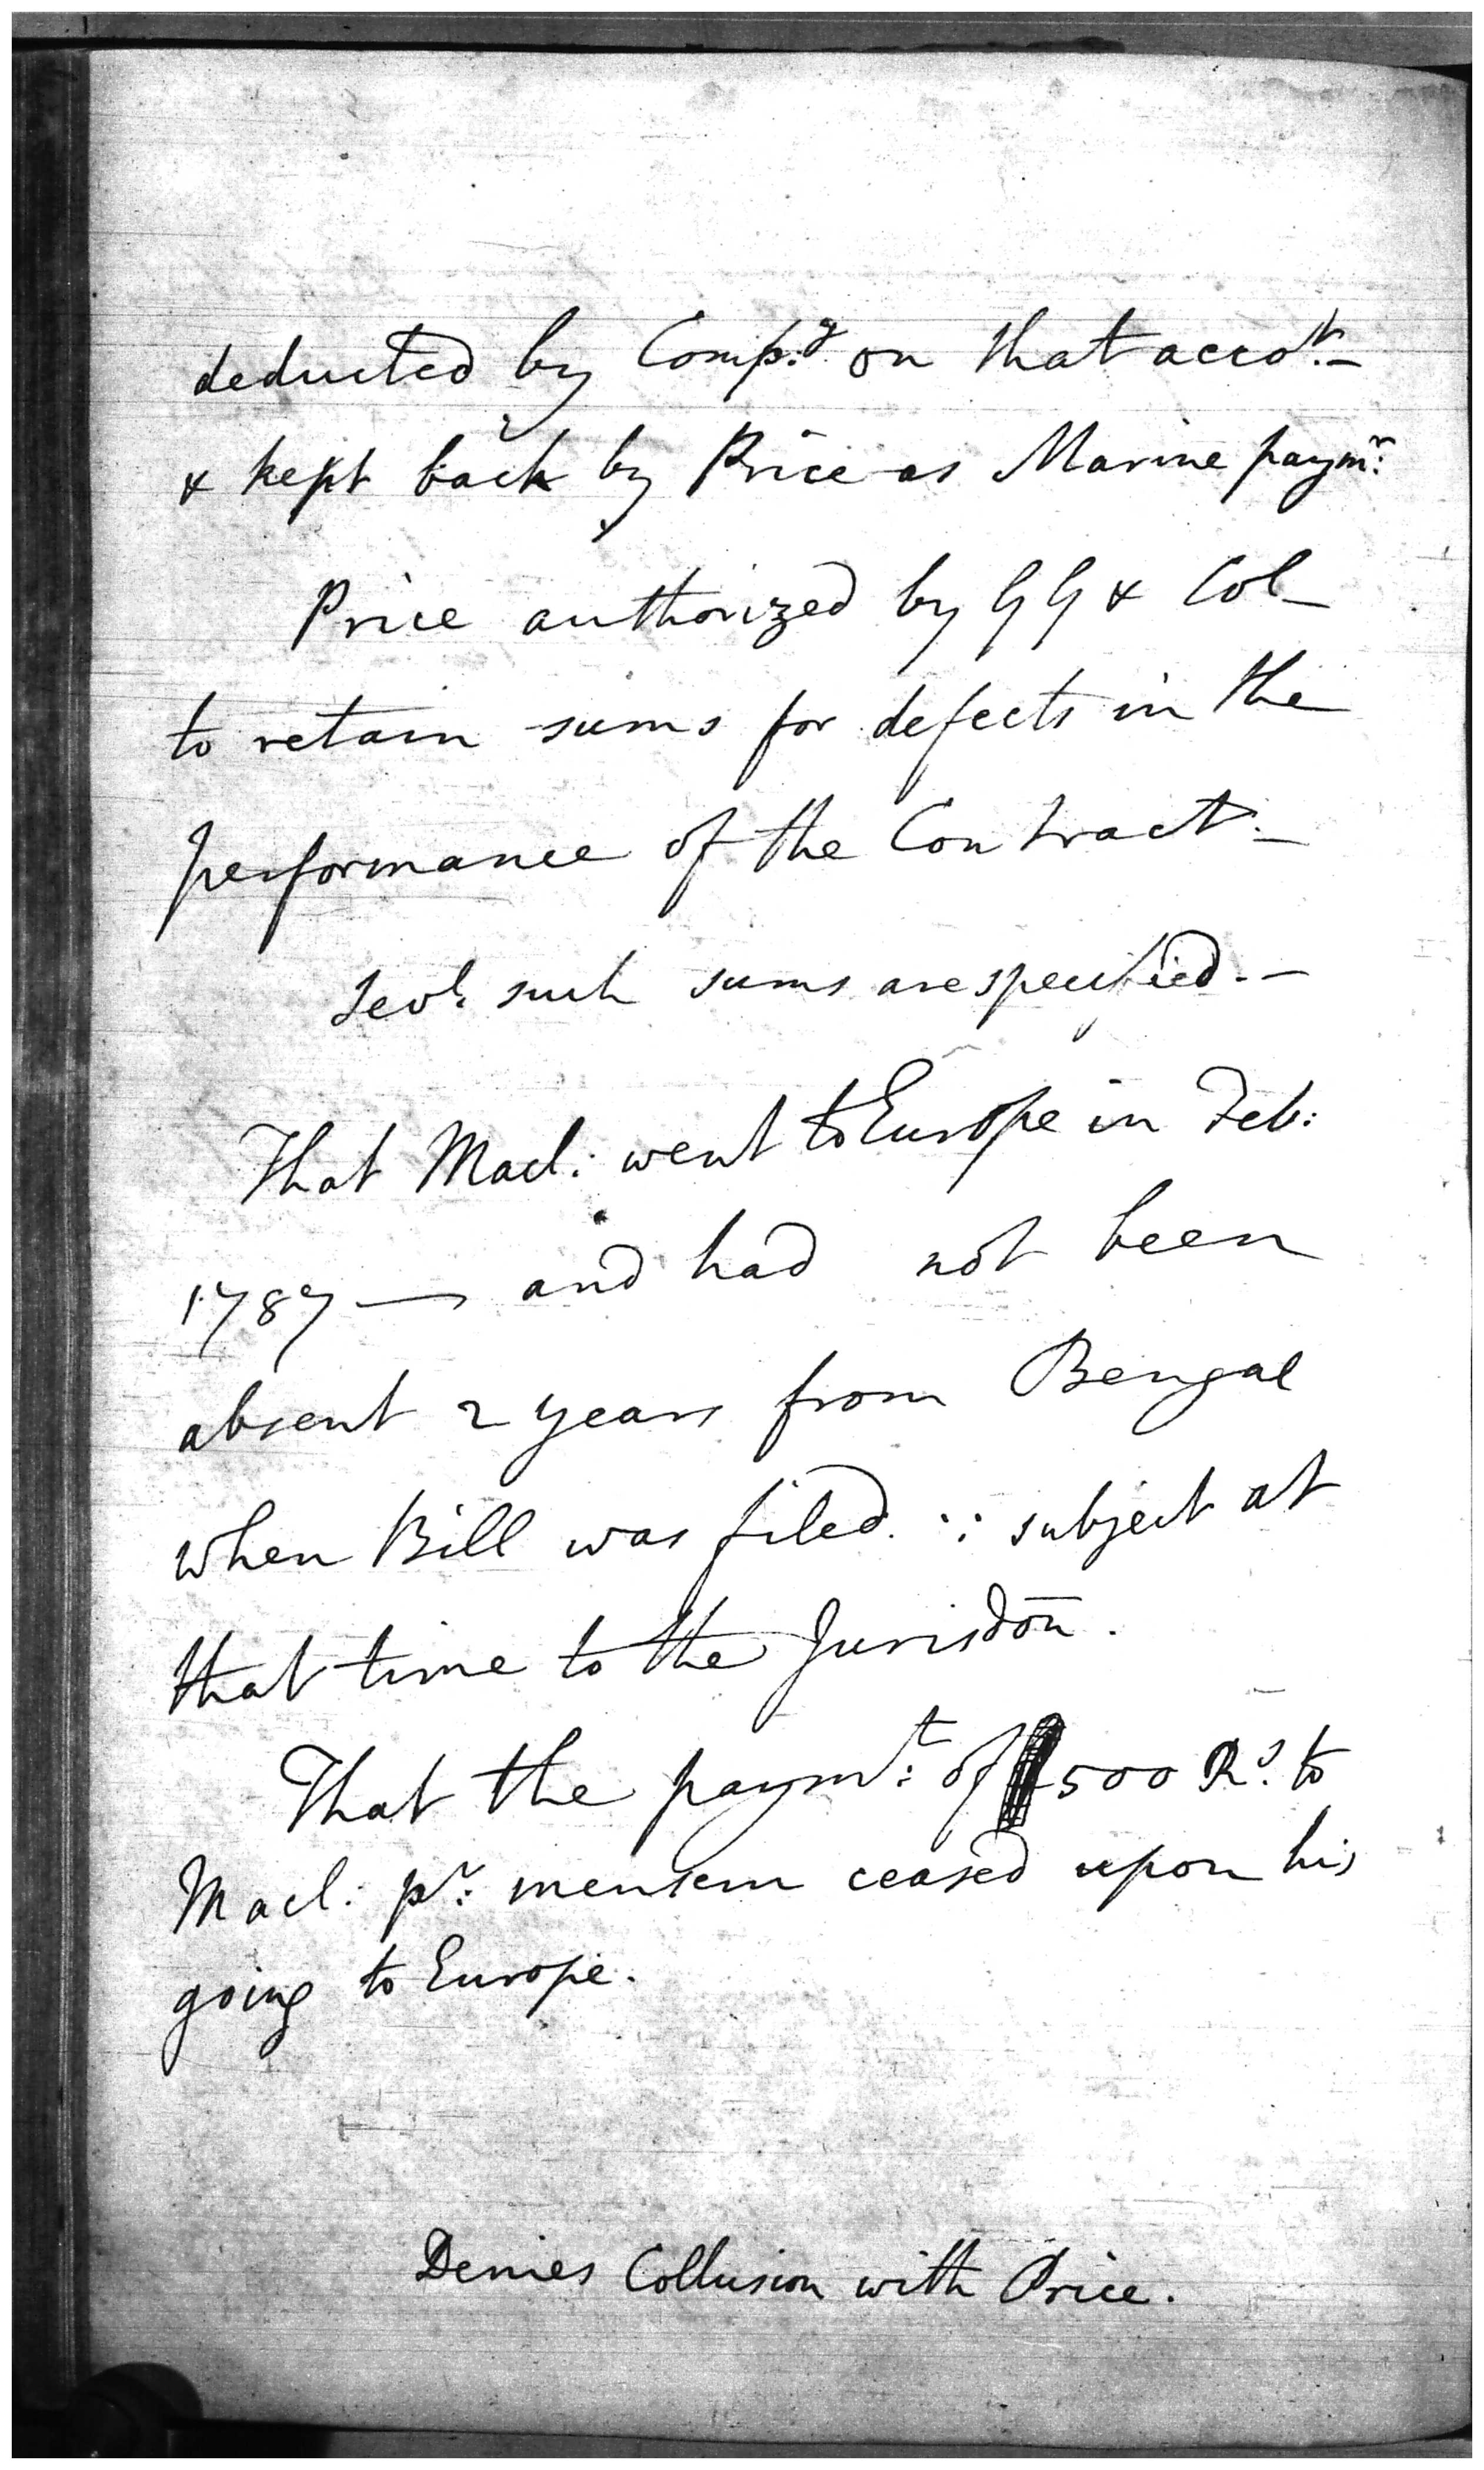 deducted by Comp:y on that accot:—
& kept back by Price as Marine paymr:
Price authorized by GG & Col—
to retain sums for defects in the
performance of the Contract:—
Sevl: such sums are specified.—
That Macl: went to Europe in Feb:
1787 — and had not been
absent 2 years from Bengal
when Bill was filed. ∵ subject at
that time to the Jurisdon̄.
That the paymt: of 500 Rs. to
Macl: pr: mensem ceased upon his
going to Europe.
Denies Collusion with Price.